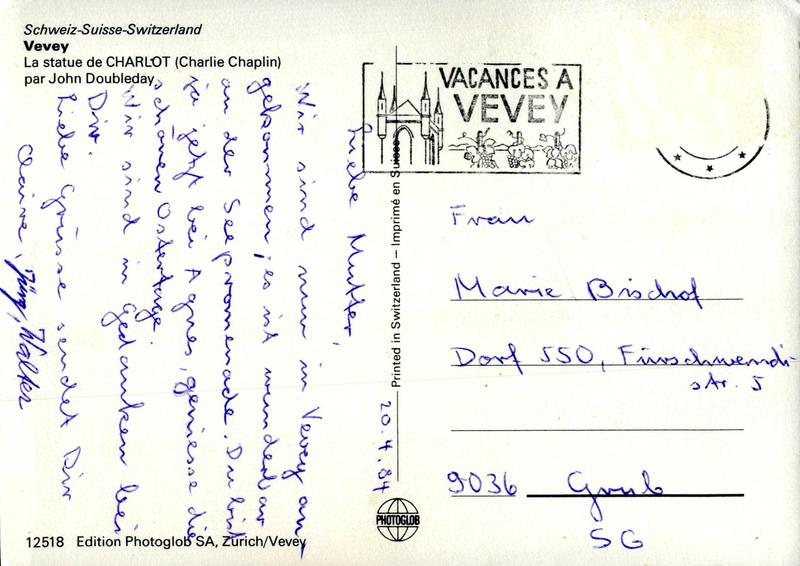 Schweiz-Suisse-Switzerland
Vevey
La statue de CHARLOT (Charlie Chaplin)
par John Doubleday
20.4.84
Liebe Mutter,
Wir sind nun in Vevey an-
gekommen, es ist wunderbar
an der Seepromenade. Du bist
ja jetzt bei Agnes, geniesse die
schönen Ostertage.
Wir sind in Gedanken bei
Dir.
Liebe Grüsse sendet Dir
Claire, Jürg, Walter
VACANCES A
VEVEY
Frau
Marie Bischof
Dorf 550, Fürschwendi-
str. 5
9036 Grub
SG
Printed in Switzerland — Imprimé en Suisse
PHOTOGLOB
12518 Edition Photoglob SA, Zürich/Vevey